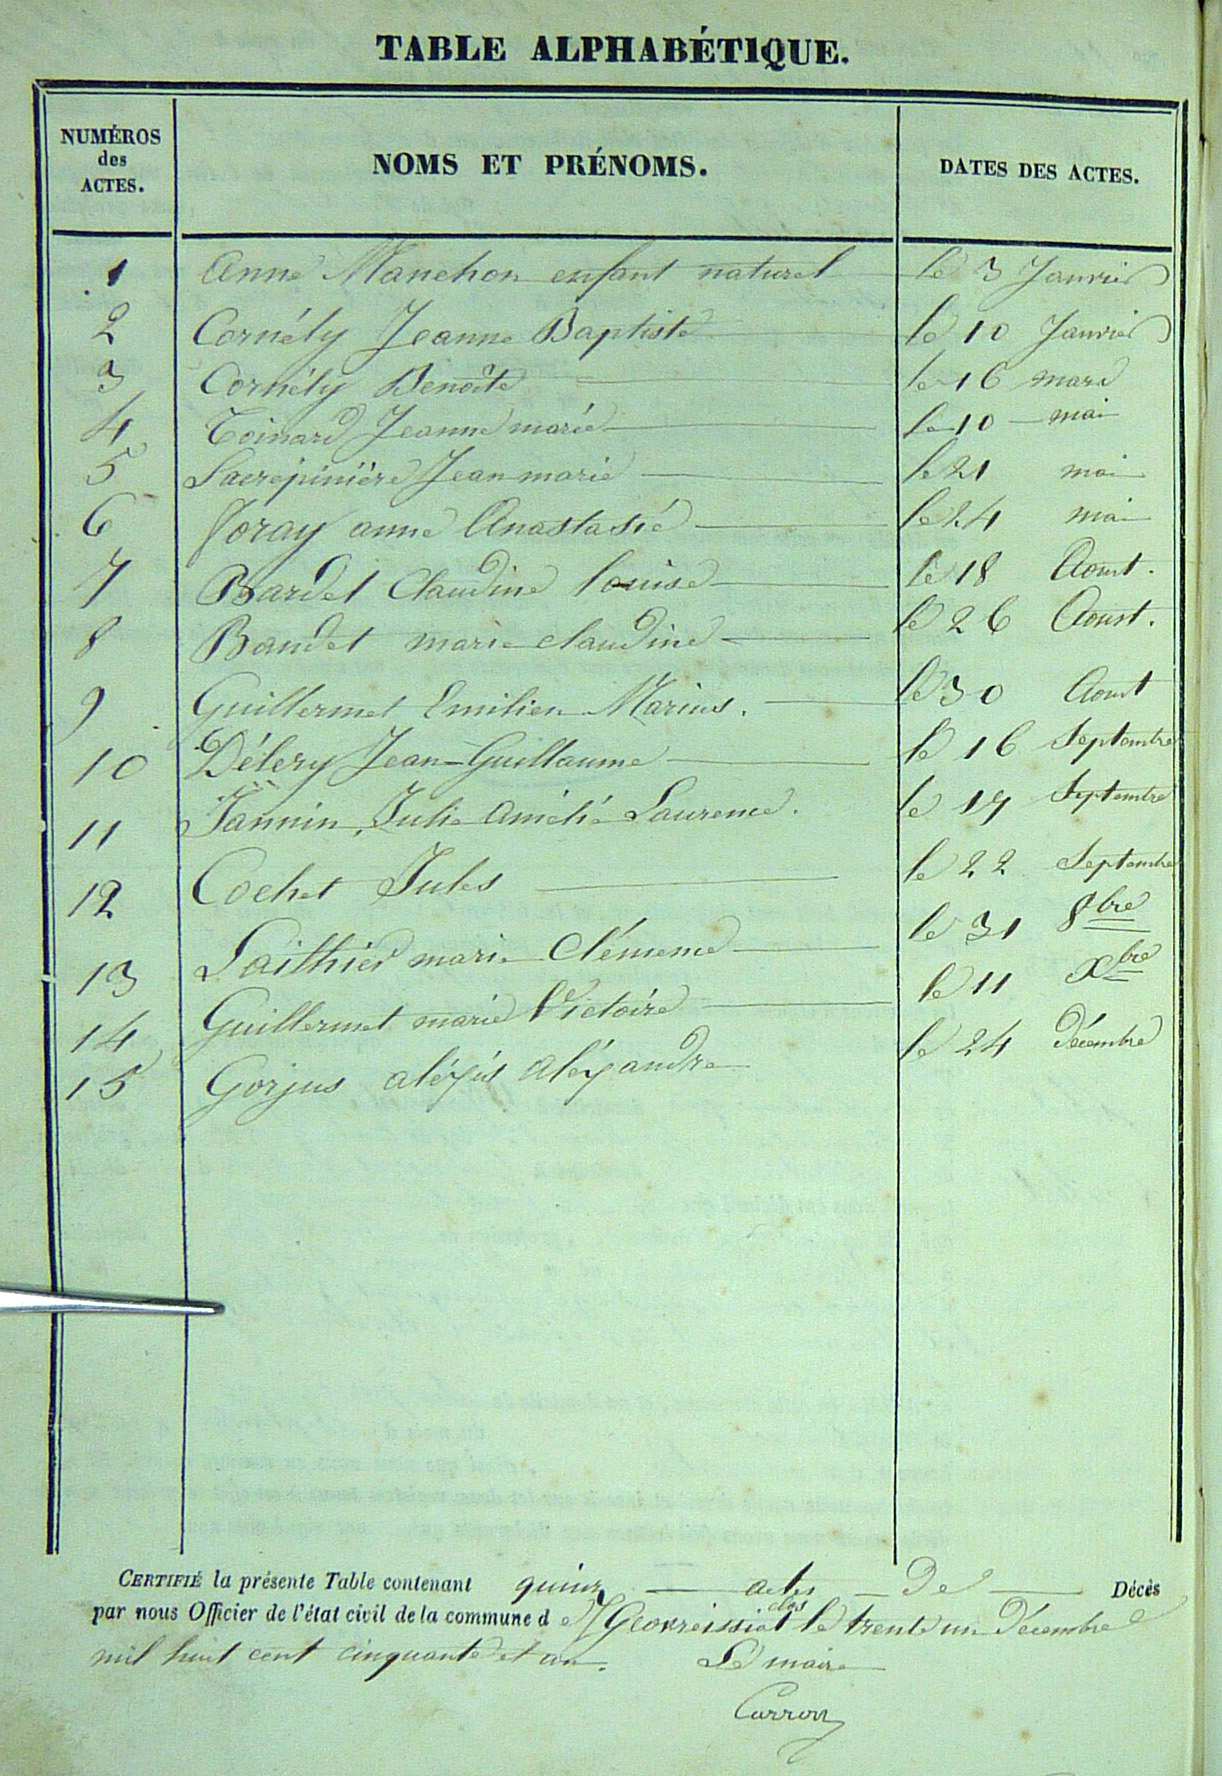 TABLE ALPHABÉTIQUE.
NUMÉROS des ACTES. NOMS ET PRÉNOMS. DATES DES ACTES.
1 Anne Manchon enfant naturel le 3 Janvier
2 Cornély Jeanne Baptiste le 10 Janvier
3 Cornély Benoîte le 16 mars
4 Coinard Jeanne marie le 10 mai
5 Lacrepinière Jean marie le 21 mai
6 Joray anne Anastasie le 24 mai
7 Bardet Claudine louise le 18 Aoust.
8 Baudet marie claudine le 26 Aoust.
9 Guillermet Emilien Marius. le 30 Aoust
10 Délery Jean-Guillaume le 16 Septembre
11 Jannin, Julie Amélie Laurence. le 17 Septembre
12 Cochet Jules le 22 Septembre
13 Laithier marie Clémence le 31 8bre
14 Guillermet marie Victoire le 11 Xbre
15 Gorjus aléxis aléxandre le 24 Décembre
CERTIFIÉ la présente Table contenant quinze actes de Décès
par nous Officier de l'état civil de la commune d e le trente un Décembre
mil huit cent cinquante et un. Le maire
Carron